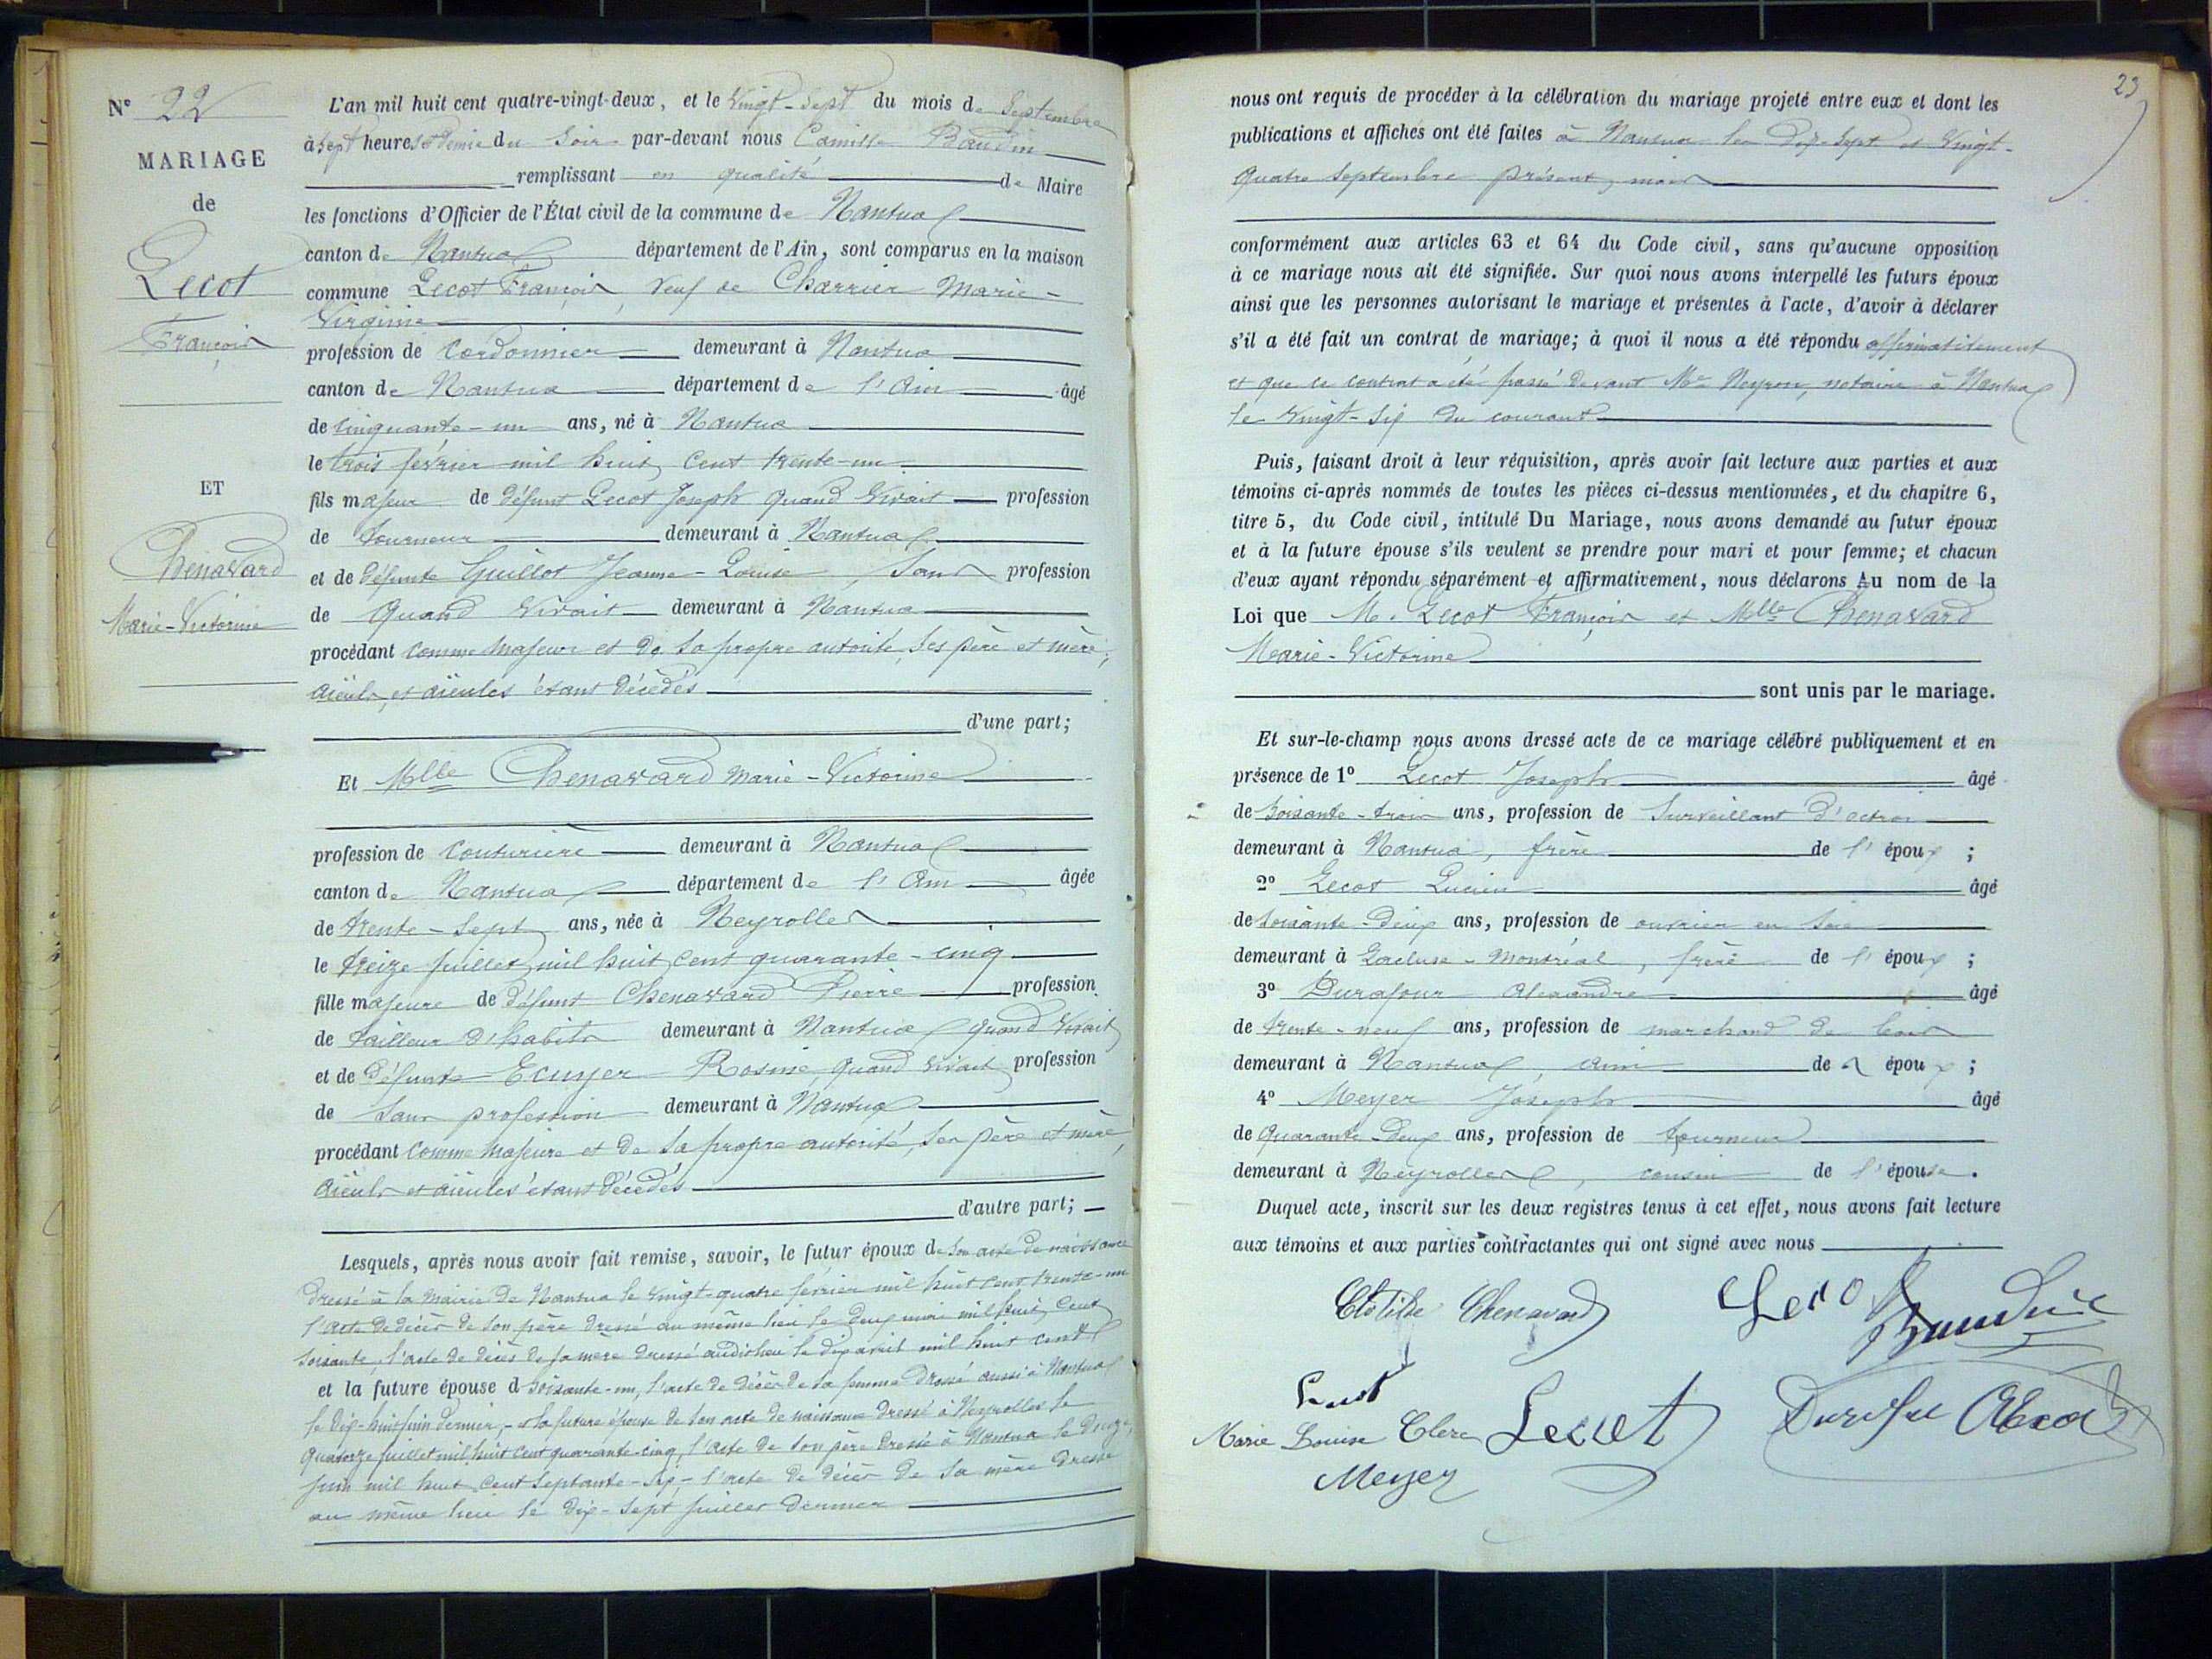 N° 22
MARIAGE
de
Lecot
François
ET
Chenavard
Marie-Victorine
L'an mil huit cent quatre-vingt-deux, et le Vingt-Sept du mois de Septembre
à Sept heures et Demie du Soir par-devant nous Camille Baudin
remplissant en qualité de Maire
les fonctions d'Officier de l'État civil de la commune de Nantua
canton de Nantua département de l'Ain, sont comparus en la maison
commune Lecot François, Veuf de Charrier Marie-
Virginie
profession de Cordonnier demeurant à Nantua
canton de Nantua département de l'Ain âgé
de Cinquante-un ans, né à Nantua
le trois février mil huit cent trente-un
fils majeur de défunt Lecot Joseph quand Vivait profession
de tourneur demeurant à Nantua
et de défunte Guillot Jeanne-Louise, Sans profession
de Quand Vivait demeurant à Nantua
procédant comme Majeur et de Sa propre autorité, Ses père et mère,
aïeuls et aïeules étant décédés
d'une part;
Et Mlle Chenavard Marie-Victorine
profession de Couturière demeurant à Nantua
canton de Nantua département de l'Ain âgée
de trente-Sept ans, née à Neyrolles
le treize juillet mil huit cent quarante-cinq
fille majeure de défunt Chenavard Pierre profession
de tailleur d'habits demeurant à Nantua quand Vivait
et de défunte Ecuyer Rosine, quand vivait profession
de Sans profession demeurant à Nantua
procédant comme Majeure et de Sa propre autorité, Ses père et mère,
aïeuls et aïeules étant décédés
d'autre part;
Lesquels, après nous avoir fait remise, savoir, le futur époux de Son acte de naissance
dressé à la Mairie de Nantua le Vingt-quatre février mil huit cent trente-un
l'acte de décès de Son père dressé au même lieu le deux mai mil huit cent
Soixante, l'acte de décès de Sa mère dressé audit lieu le dix avril mil huit cent
et la future épouse d Soixante-un, l'acte de décès de Sa femme dressé aussi à Nantua
le dix-huit juin dernier, - et la future épouse de Son acte de naissance dressé à Neyrolles le
Quatorze juillet mil huit cent quarante-cinq, l'acte de Son père dressé à Nantua le
juin mil huit cent Septante-Six, - l'acte de décès de Sa mère dressé
au même lieu le dix-Sept juillet dernier
23
nous ont requis de procéder à la célébration du mariage projeté entre eux et dont les
publications et affichés ont été faites à Nantua les Dix-Sept et Vingt-
Quatre Septembre présent mois
conformément aux articles 63 et 64 du Code civil, sans qu'aucune opposition
à ce mariage nous ait été signifiée. Sur quoi nous avons interpellé les futurs époux
ainsi que les personnes autorisant le mariage et présentes à l'acte, d'avoir à déclarer
s'il a été fait un contrat de mariage; à quoi il nous a été répondu affirmativement
et que ce contrat a été passé devant Me Neyron, notaire à Nantua
le Vingt-Six du courant
Puis, faisant droit à leur réquisition, après avoir fait lecture aux parties et aux
témoins ci-après nommés de toutes les pièces ci-dessus mentionnées, et du chapitre 6,
titre 5, du Code civil, intitulé Du Mariage, nous avons demandé au futur époux
et à la future épouse s'ils veulent se prendre pour mari et pour femme; et chacun
d'eux ayant répondu séparément et affirmativement, nous déclarons Au nom de la
Loi que M. Lecot François et Mlle Chenavard
Marie-Victorine
sont unis par le mariage.
Et sur-le-champ nous avons dressé acte de ce mariage célébré publiquement et en
présence de 1° Lecot Joseph âgé
de Soixante-trois ans, profession de Surveillant d'octroi
demeurant à Nantua, frère de l'époux ;
2° Lecot Lucien âgé
de Soixante-Deux ans, profession de ouvrier en Soie
demeurant à Lacluse-Montréal, frère de l'époux ;
3° Durafour Alexandre âgé
de trente-neuf ans, profession de marchand de bois
demeurant à Nantua, ami des époux ;
4° Meyer Joseph âgé
de Quarante-Deux ans, profession de tourneur
demeurant à Neyrolles, cousin de l'épouse.
Duquel acte, inscrit sur les deux registres tenus à cet effet, nous avons fait lecture
aux témoins et aux parties contractantes qui ont signé avec nous
Clotilde Chenavard
Baudin
Marie Louise Clerc Lecot
Meyer